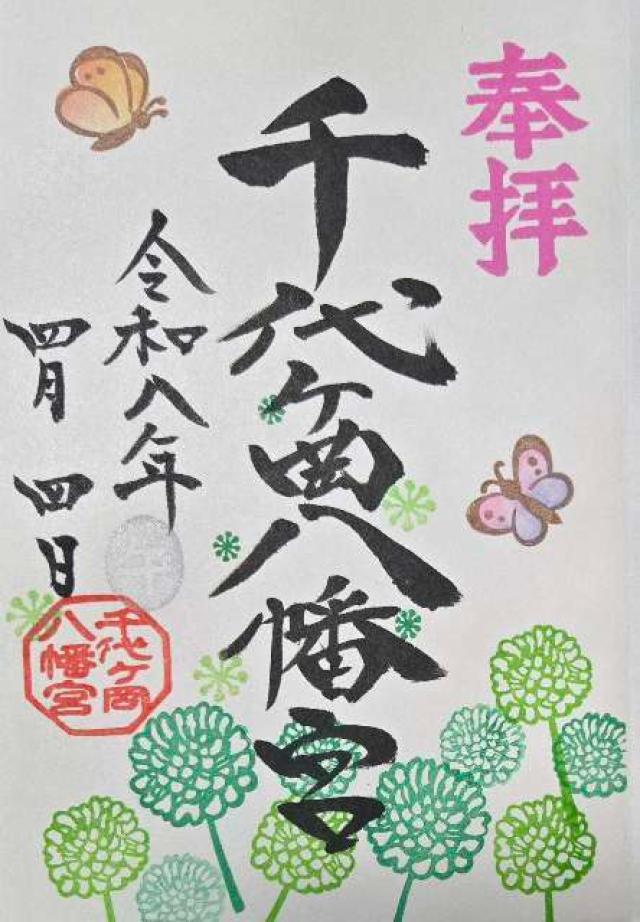 奉拝
千代ヶ岡八幡宮
令和八年
四月 四日
千代ヶ岡
八幡宮